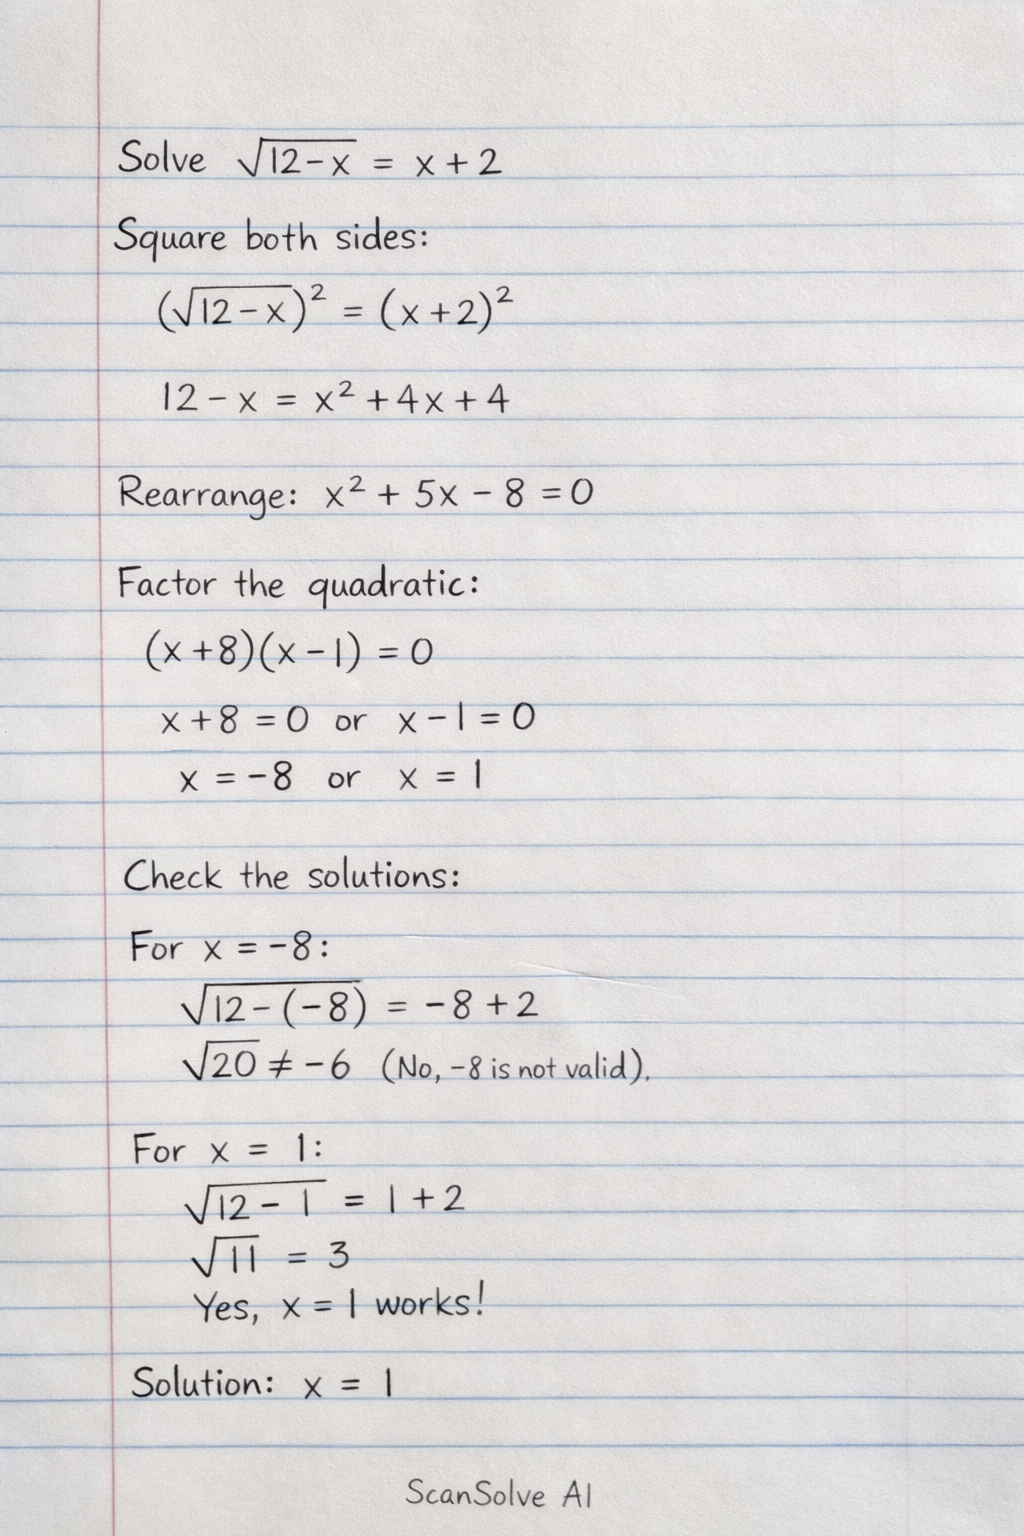 Solve √(12-x) = x+2
Square both sides:
(√(12-x))² = (x+2)²
12-x = x²+4x+4
Rearrange: x² + 5x - 8 = 0
Factor the quadratic:
(x+8)(x-1) = 0
x+8 = 0 or x-1 = 0
x = -8 or x = 1
Check the solutions:
For x = -8:
√(12-(-8)) = -8+2
√20 ≠ -6 (No, -8 is not valid).
For x = 1:
√(12-1) = 1+2
√11 = 3
Yes, x = 1 works!
Solution: x = 1
ScanSolve AI